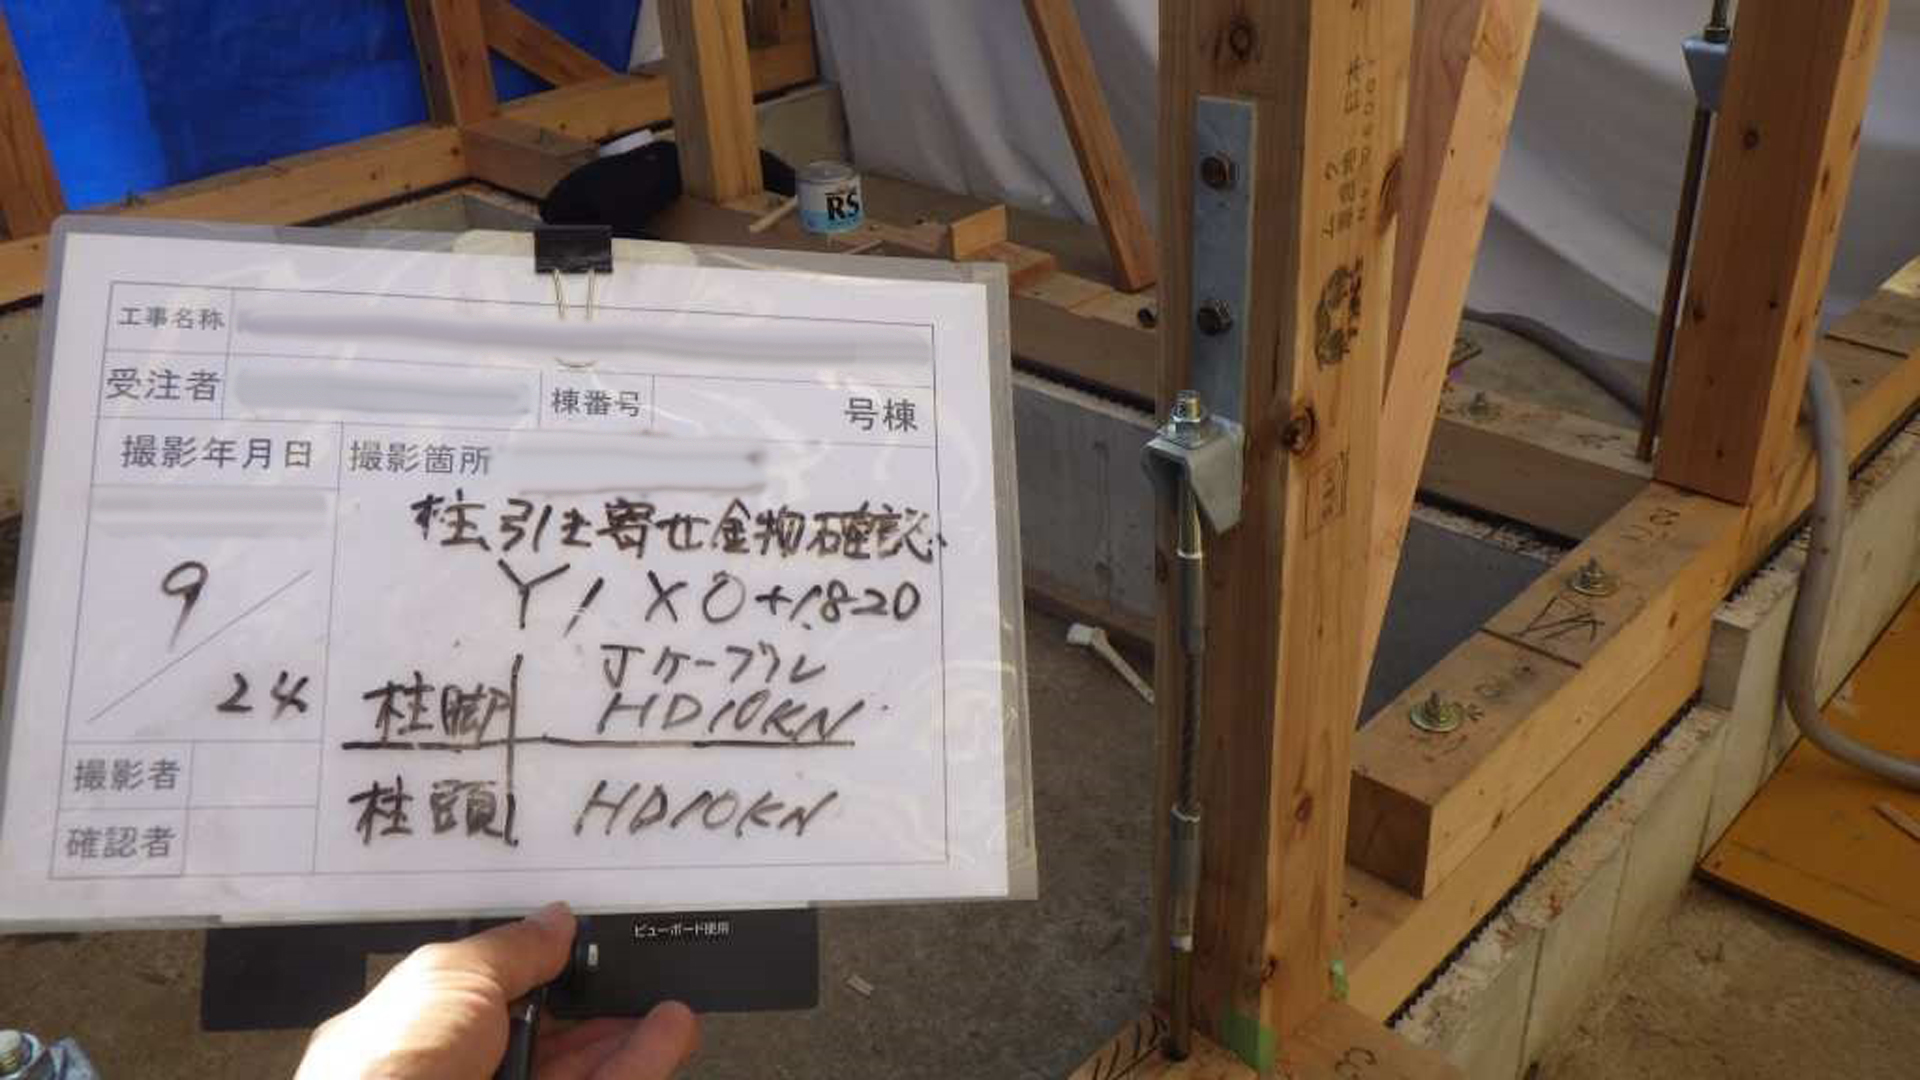 RS
工事名称
受注者 棟番号 号棟
撮影年月日 撮影箇所
柱引き寄せ金物確認
Y1 X0+1.820
9/24
柱脚 Jケーブル
HD10KN
柱頭 HD10KN
撮影者
確認者
ビューボード使用